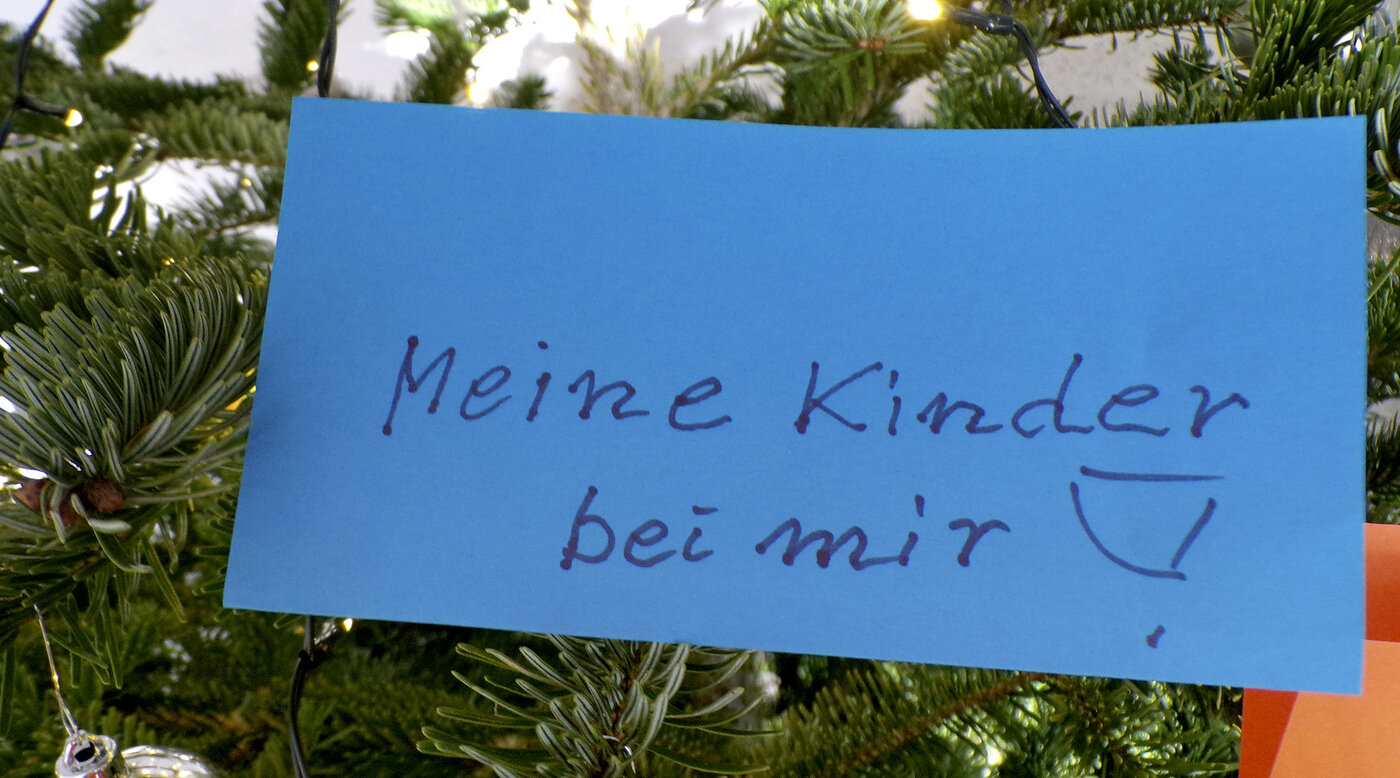 Meine Kinder
bei mir !